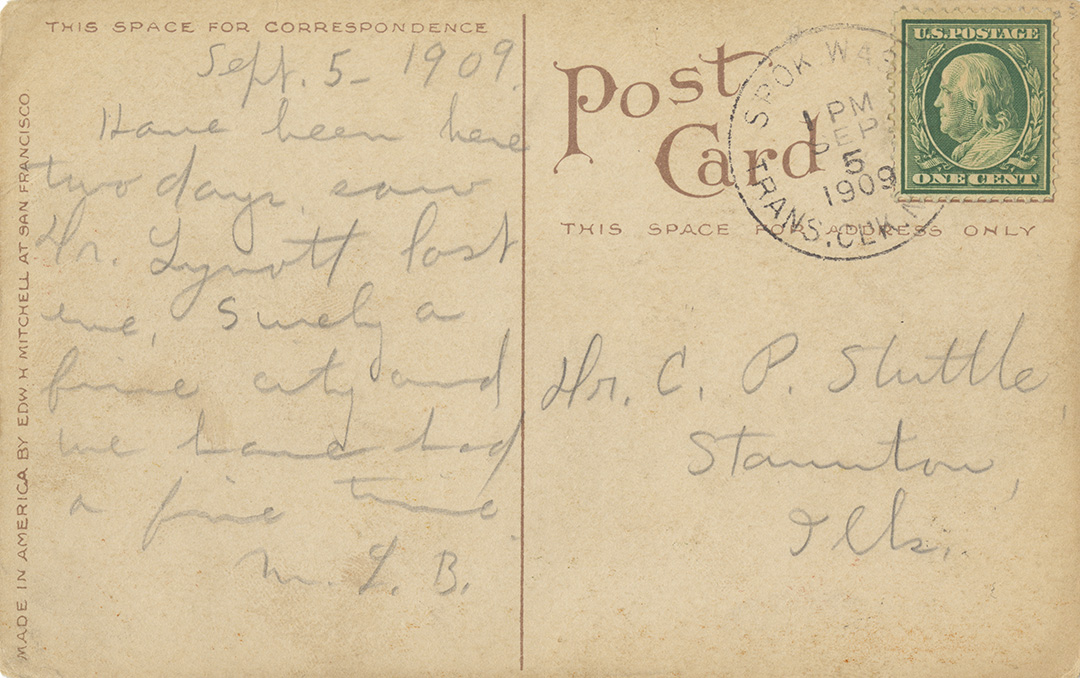 THIS SPACE FOR CORRESPONDENCE
Sept. 5- 1909.
Have been here
two days, saw
Dr. Lynott last
eve. Surely a
fine city and
we have had
a fine time
M. L. B.
MADE IN AMERICA BY EDW. H MITCHELL AT SAN FRANCISCO
Post
Card
THIS SPACE FOR ADDRESS ONLY
SPOK WAS
1 PM
SEP
5
1909
TRANS. CLK.
U.S. POSTAGE
ONE CENT
Dr. C. P. Stuttle,
Staunton,
Ills.